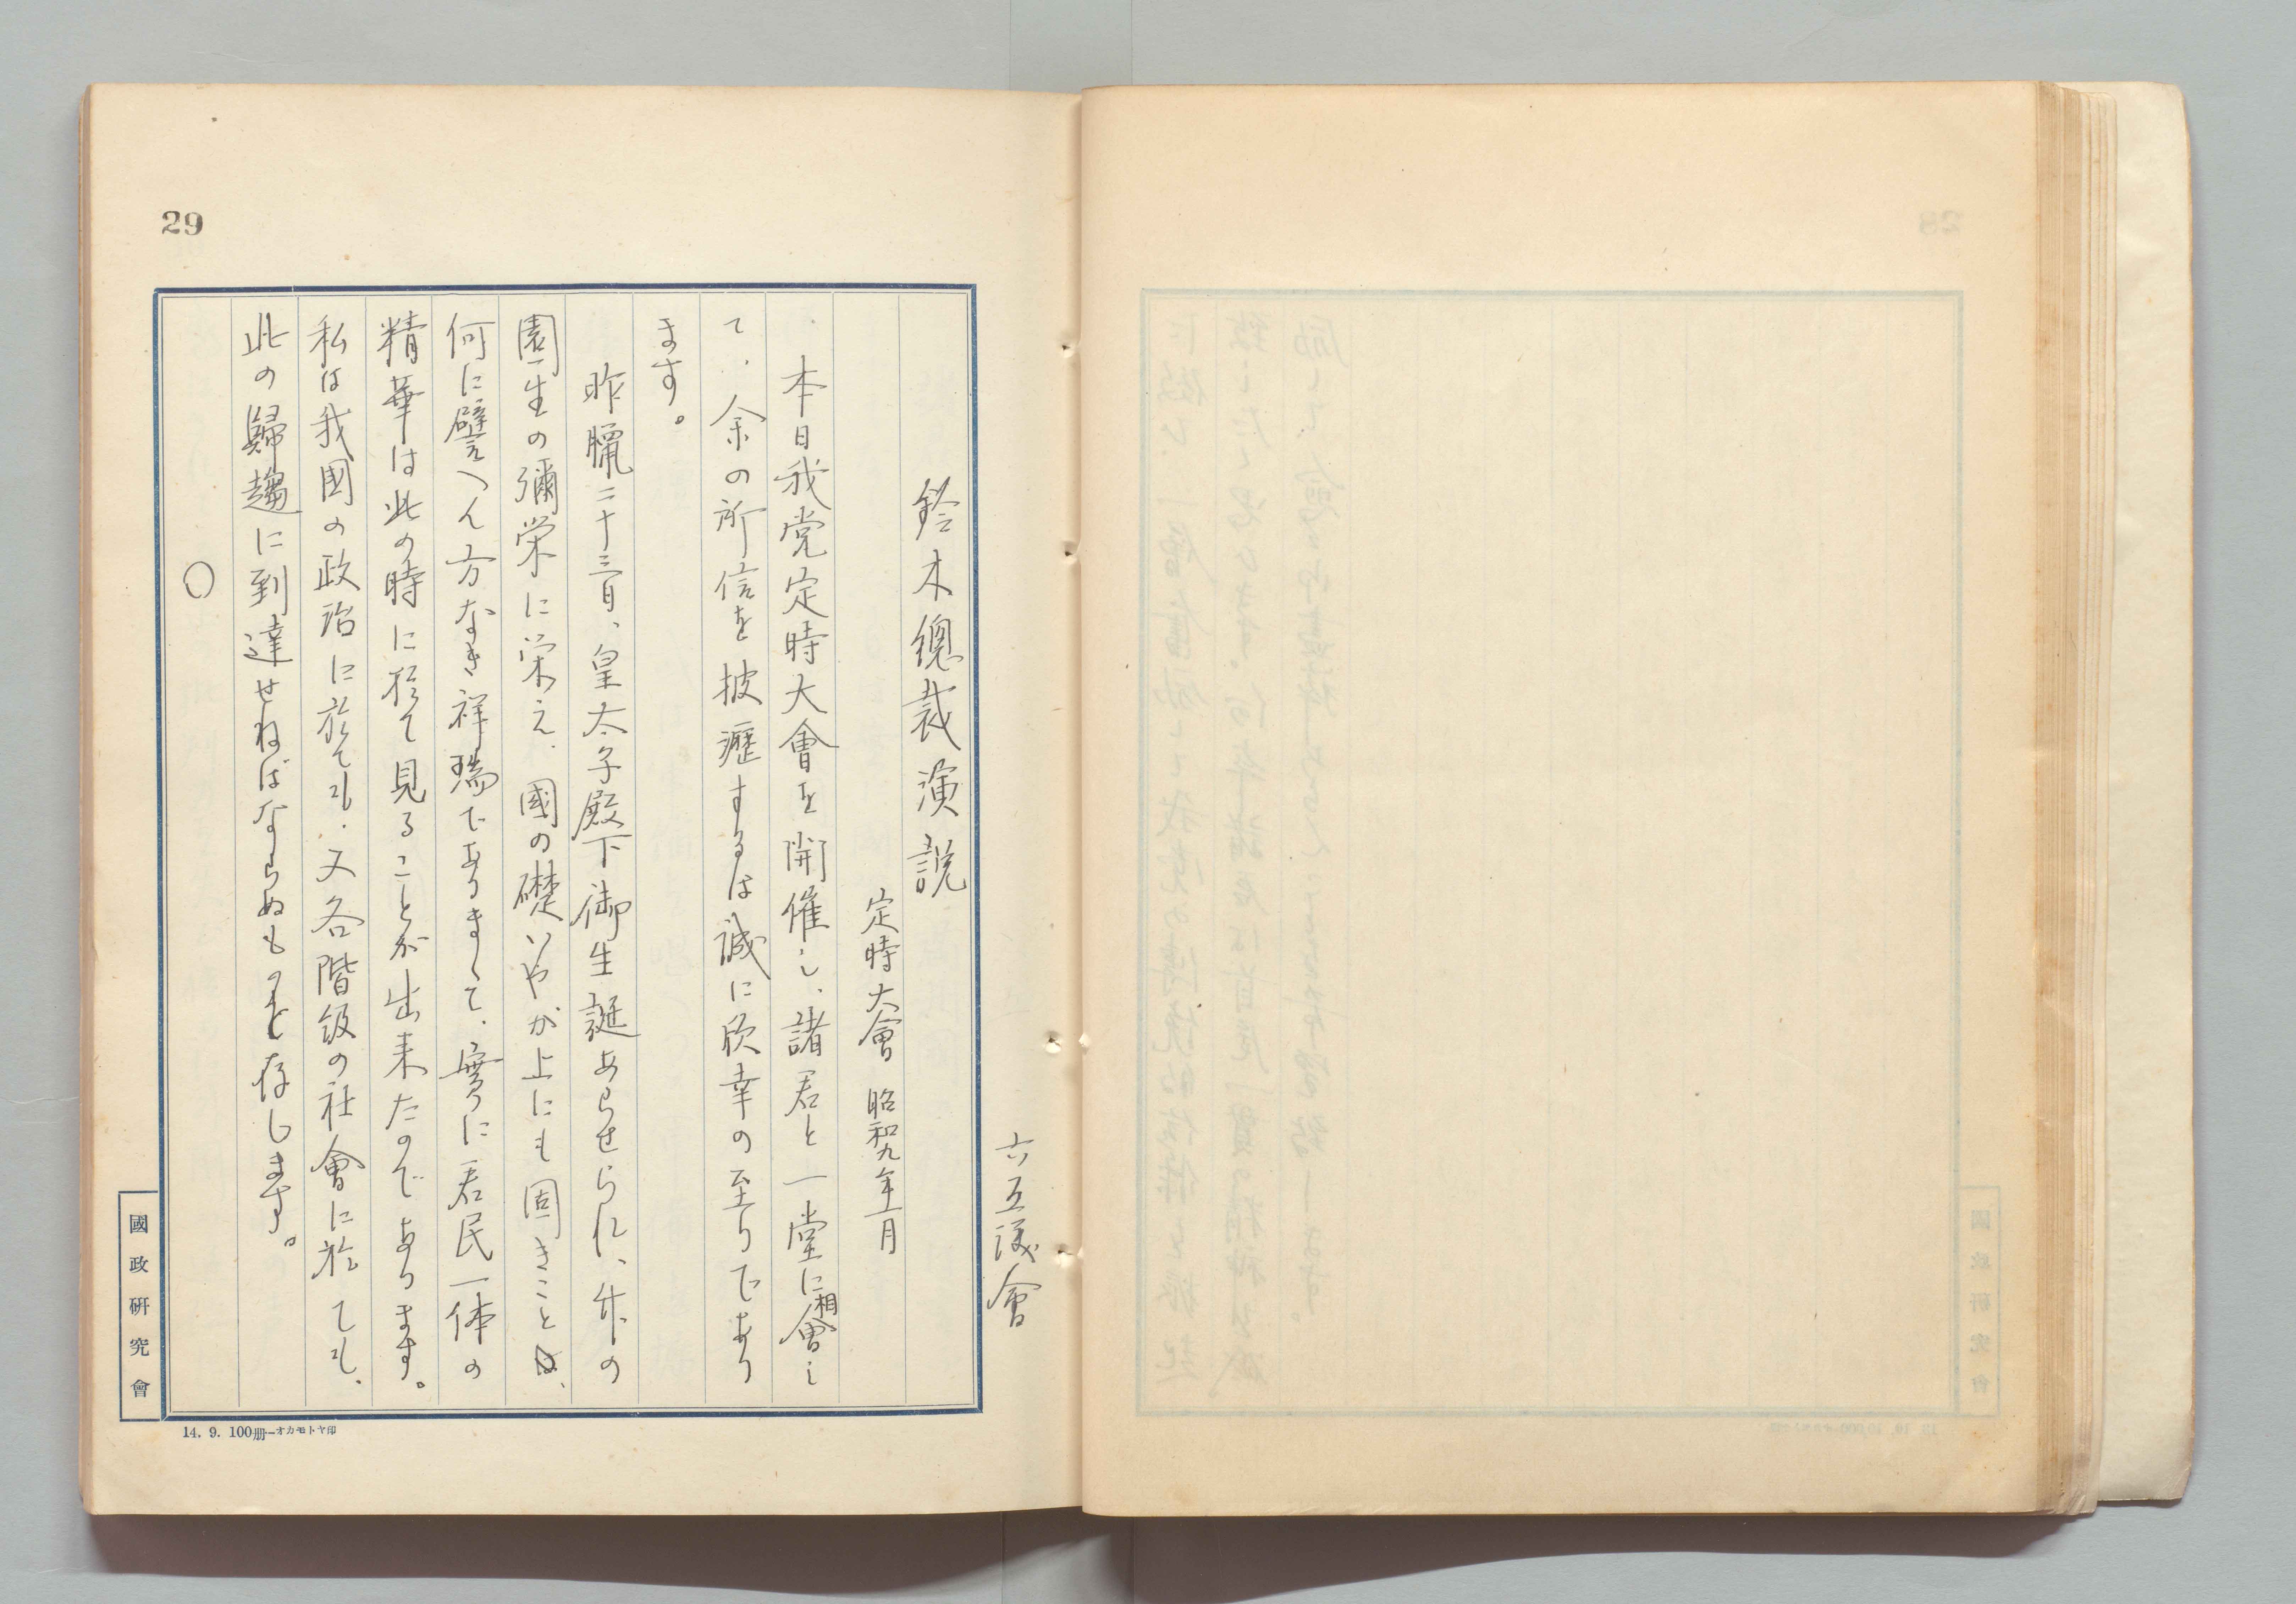 六五議會
鈴木總裁演説
定時大會 昭和九年一月
本日我党定時大會を開催し、諸君と一堂に相會し
て、余の所信を披瀝するは誠に欣幸の至りであり
ます。
昨臘二十三日、皇太子殿下御生誕あらせられ、竹の
園生の彌栄に栄え、國の礎いやが上にも固きことは、
何に譬へん方なき祥瑞でありまして、實に君民一体の
精華は此の時に於て見ることが出来たのであります。
私は我國の政治に於ても、又各階級の社會に於ても、
此の歸趨に到達せねばならぬものと存じます。
〇
29
國政研究會
14. 9. 100册―オカモトヤ印